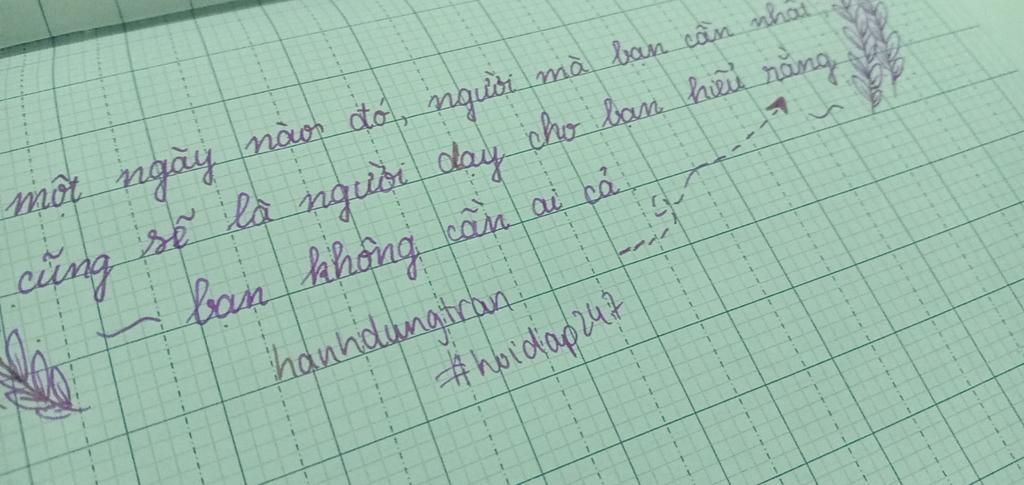 một ngày nào đó, người mà bạn cần nhất
cũng sẽ là người dạy cho bạn hiểu rằng
bạn không cần ai cả
hanhdungtran
#hoidap247